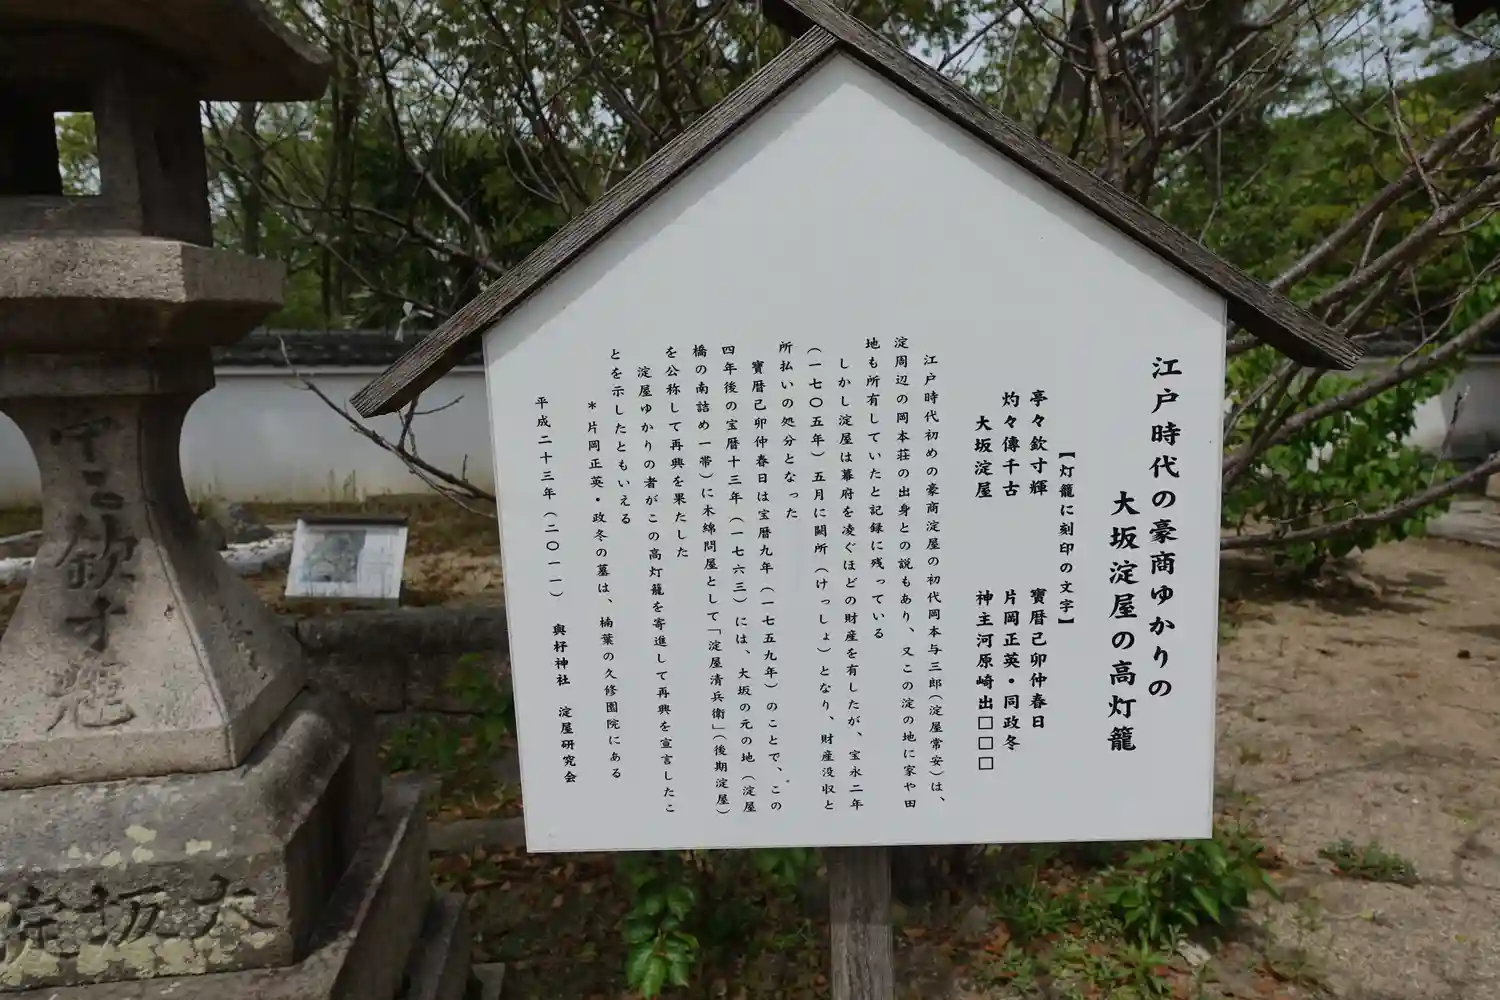 江戸時代の豪商ゆかりの
大坂淀屋の高灯籠
【灯籠に刻印の文字】
亭々欽寸輝
寶暦己卯仲春日
灼々傳千古
片岡正英・同政冬
大坂淀屋
神主河原崎出□□□
江戸時代初めの豪商淀屋の初代岡本与三郎(淀屋常安)は、
淀周辺の岡本荘の出身との説もあり、又この淀の地に家や田
地も所有していたと記録に残っている
しかし淀屋は幕府を凌ぐほどの財産を有したが、宝永二年
(一七〇五年)五月に闕所(けっしょ)となり、財産没収と
所払いの処分となった
寶暦己卯仲春日は宝暦九年(一七五九年)のことで、この
四年後の宝暦十三年(一七六三)には、大坂の元の地(淀屋
橋の南詰め一帯)に木綿問屋として「淀屋清兵衛」(後期淀屋)
を公称して再興を果たした
淀屋ゆかりの者がこの高灯籠を寄進して再興を宣言したこ
とを示したともいえる
*片岡正英・政冬の墓は、楠葉の久修園院にある
平成二十三年(二〇一一) 與杼神社 淀屋研究会
欽寸
大坂淀